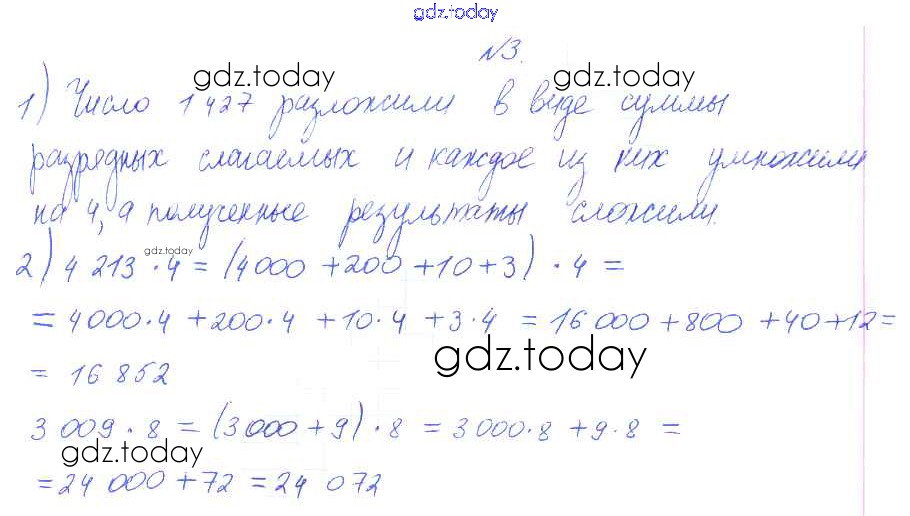 gdz.today
№3.
gdz.today
1) Число 1 427 разложили в виде суммы
разрядных слагаемых и каждое из них умножили
на 4, а полученные результаты сложили.
gdz.today
2) 4 213 · 4 = (4000 + 200 + 10 + 3) · 4 =
= 4000·4 + 200·4 + 10·4 + 3·4 = 16 000 + 800 + 40 + 12 =
gdz.today
= 16 852
3 009 · 8 = (3 000 + 9) · 8 = 3 000·8 + 9·8 =
gdz.today
= 24 000 + 72 = 24 072